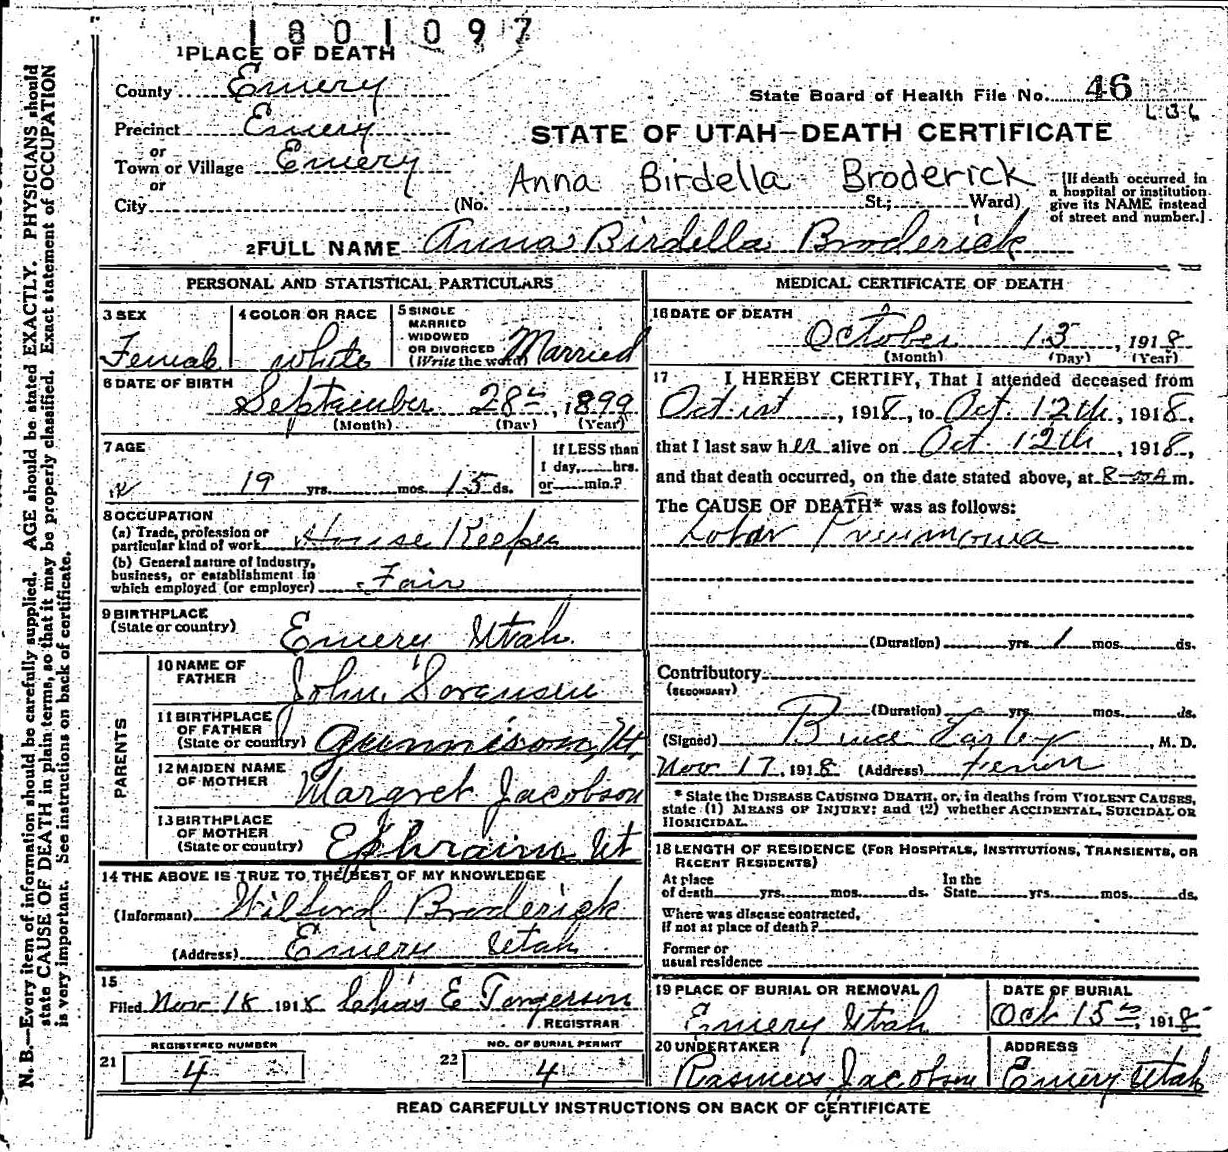 1801097
1 PLACE OF DEATH
County Emery
State Board of Health File No. 46
Precinct Emery
or
STATE OF UTAH—DEATH CERTIFICATE
Town or Village Emery
or
Anna Birdella Broderick
City (No. St.; Ward)
[If death occurred in a hospital or institution give its NAME instead of street and number.]
2 FULL NAME Anna Birdella Broderick
PERSONAL AND STATISTICAL PARTICULARS
3 SEX Female
4 COLOR OR RACE White
5 SINGLE MARRIED WIDOWED OR DIVORCED (Write the word) Married
6 DATE OF BIRTH
September 28th, 1899
(Month) (Day) (Year)
7 AGE
19 yrs. mos. 15 ds.
If LESS than 1 day, hrs. or min.?
8 OCCUPATION
(a) Trade, profession or particular kind of work House Keeper
(b) General nature of Industry, business, or establishment in which employed (or employer) Fair
9 BIRTHPLACE
(State or country) Emery Utah
PARENTS
10 NAME OF FATHER John Sorensen
11 BIRTHPLACE OF FATHER (State or country) Gunnison, Ut
12 MAIDEN NAME OF MOTHER Margret Jacobson
13 BIRTHPLACE OF MOTHER (State or country) Ephraim Ut
14 THE ABOVE IS TRUE TO THE BEST OF MY KNOWLEDGE
(Informant) Wilford Broderick
(Address) Emery Utah
15
Filed Nov 18 1918 Chas E Tongerson
REGISTRAR
21 REGISTERED NUMBER 4
22 NO. OF BURIAL PERMIT 4
MEDICAL CERTIFICATE OF DEATH
16 DATE OF DEATH
October 13, 1918
(Month) (Day) (Year)
17 I HEREBY CERTIFY, That I attended deceased from
Oct 1st, 1918, to Oct. 12th, 1918,
that I last saw her alive on Oct. 12th, 1918,
and that death occurred, on the date stated above, at 8 A m.
The CAUSE OF DEATH* was as follows:
Lobar Pneumonia
(Duration) yrs. 1 mos. ds.
Contributory
(SECONDARY)
(Duration) yrs. mos. ds.
(Signed) Bruce Easley, M. D.
Nov 17, 1918 (Address) Ferron
* State the DISEASE CAUSING DEATH, or, in deaths from VIOLENT CAUSES,
state (1) MEANS OF INJURY; and (2) whether ACCIDENTAL, SUICIDAL OR
HOMICIDAL.
18 LENGTH OF RESIDENCE (FOR HOSPITALS, INSTITUTIONS, TRANSIENTS, OR
RECENT RESIDENTS)
At place of death yrs. mos. ds. In the State yrs. mos. ds.
Where was disease contracted,
If not at place of death?
Former or
usual residence
19 PLACE OF BURIAL OR REMOVAL Emery Utah
DATE OF BURIAL Oct 15th, 1918
20 UNDERTAKER Rasmus Jacobson
ADDRESS Emery Utah
READ CAREFULLY INSTRUCTIONS ON BACK OF CERTIFICATE
N. B.—Every item of information should be carefully supplied. AGE should be stated EXACTLY. PHYSICIANS should
state CAUSE OF DEATH in plain terms, so that it may be properly classified. Exact statement of OCCUPATION
is very important. See instructions on back of certificate.